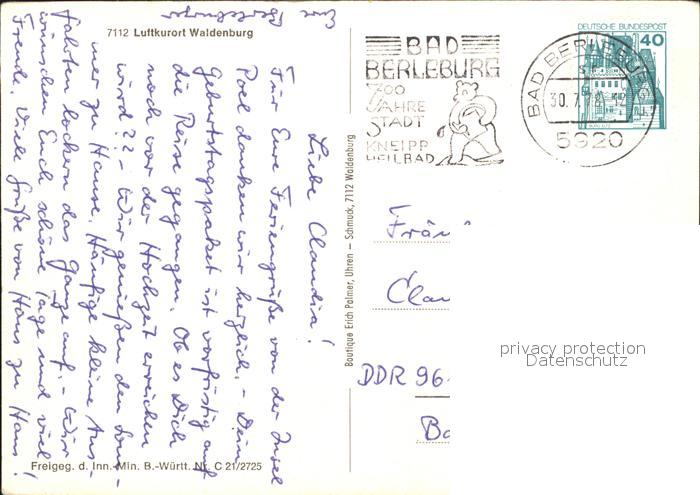 7112 Luftkurort Waldenburg
Liebe Claudia!
Für Eure Feriengrüße von der Insel
Poel danken wir herzlich. – Dein
Geburtstagspaket ist vorfristig auf
die Reise gegangen. Ob es Dich
noch vor der Hochzeit erreichen
wird?? – Wir genießen den Som-
mer zu Hause. Häufige kleine Aus-
fahrten lockern das Ganze auf. – Wir
wünschen Euch schöne Tage und viel
Freude. Viele Grüße von Haus zu Haus!
Eure
Berleburger
Freigeg. d. Inn.-Min. B.-Württ. Nr. C 21/2725
Boutique Erich Palmer, Uhren – Schmuck, 7112 Waldenburg
BAD
BERLEBURG
700
JAHRE
STADT
KNEIPP
HEILBAD
DEUTSCHE BUNDESPOST
40
BURG ELTZ
BAD BERLEBURG
30.7.
5920
Fräu
Clau
DDR 96
Ba
privacy protection
Datenschutz